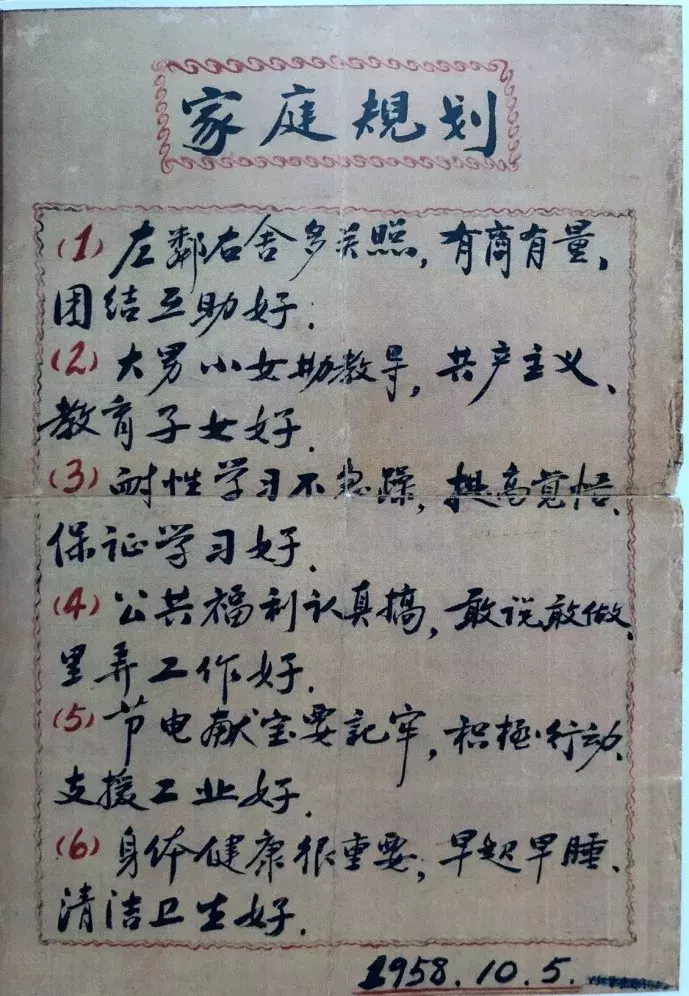 家庭規划
(1) 左鄰右舍多关照，有商有量、
团结互助好．
(2) 大男小女勤教导，共产主义、
教育子女好．
(3) 耐性学习不急躁，提高覚悟、
保证学习好．
(4) 公共福利认真搞，敢说敢做、
里弄工作好．
(5) 节电献宝要記牢，积极行动、
支援工业好．
(6) 身体健康很重要，早起早睡、
清洁卫生好．
1958.10.5.